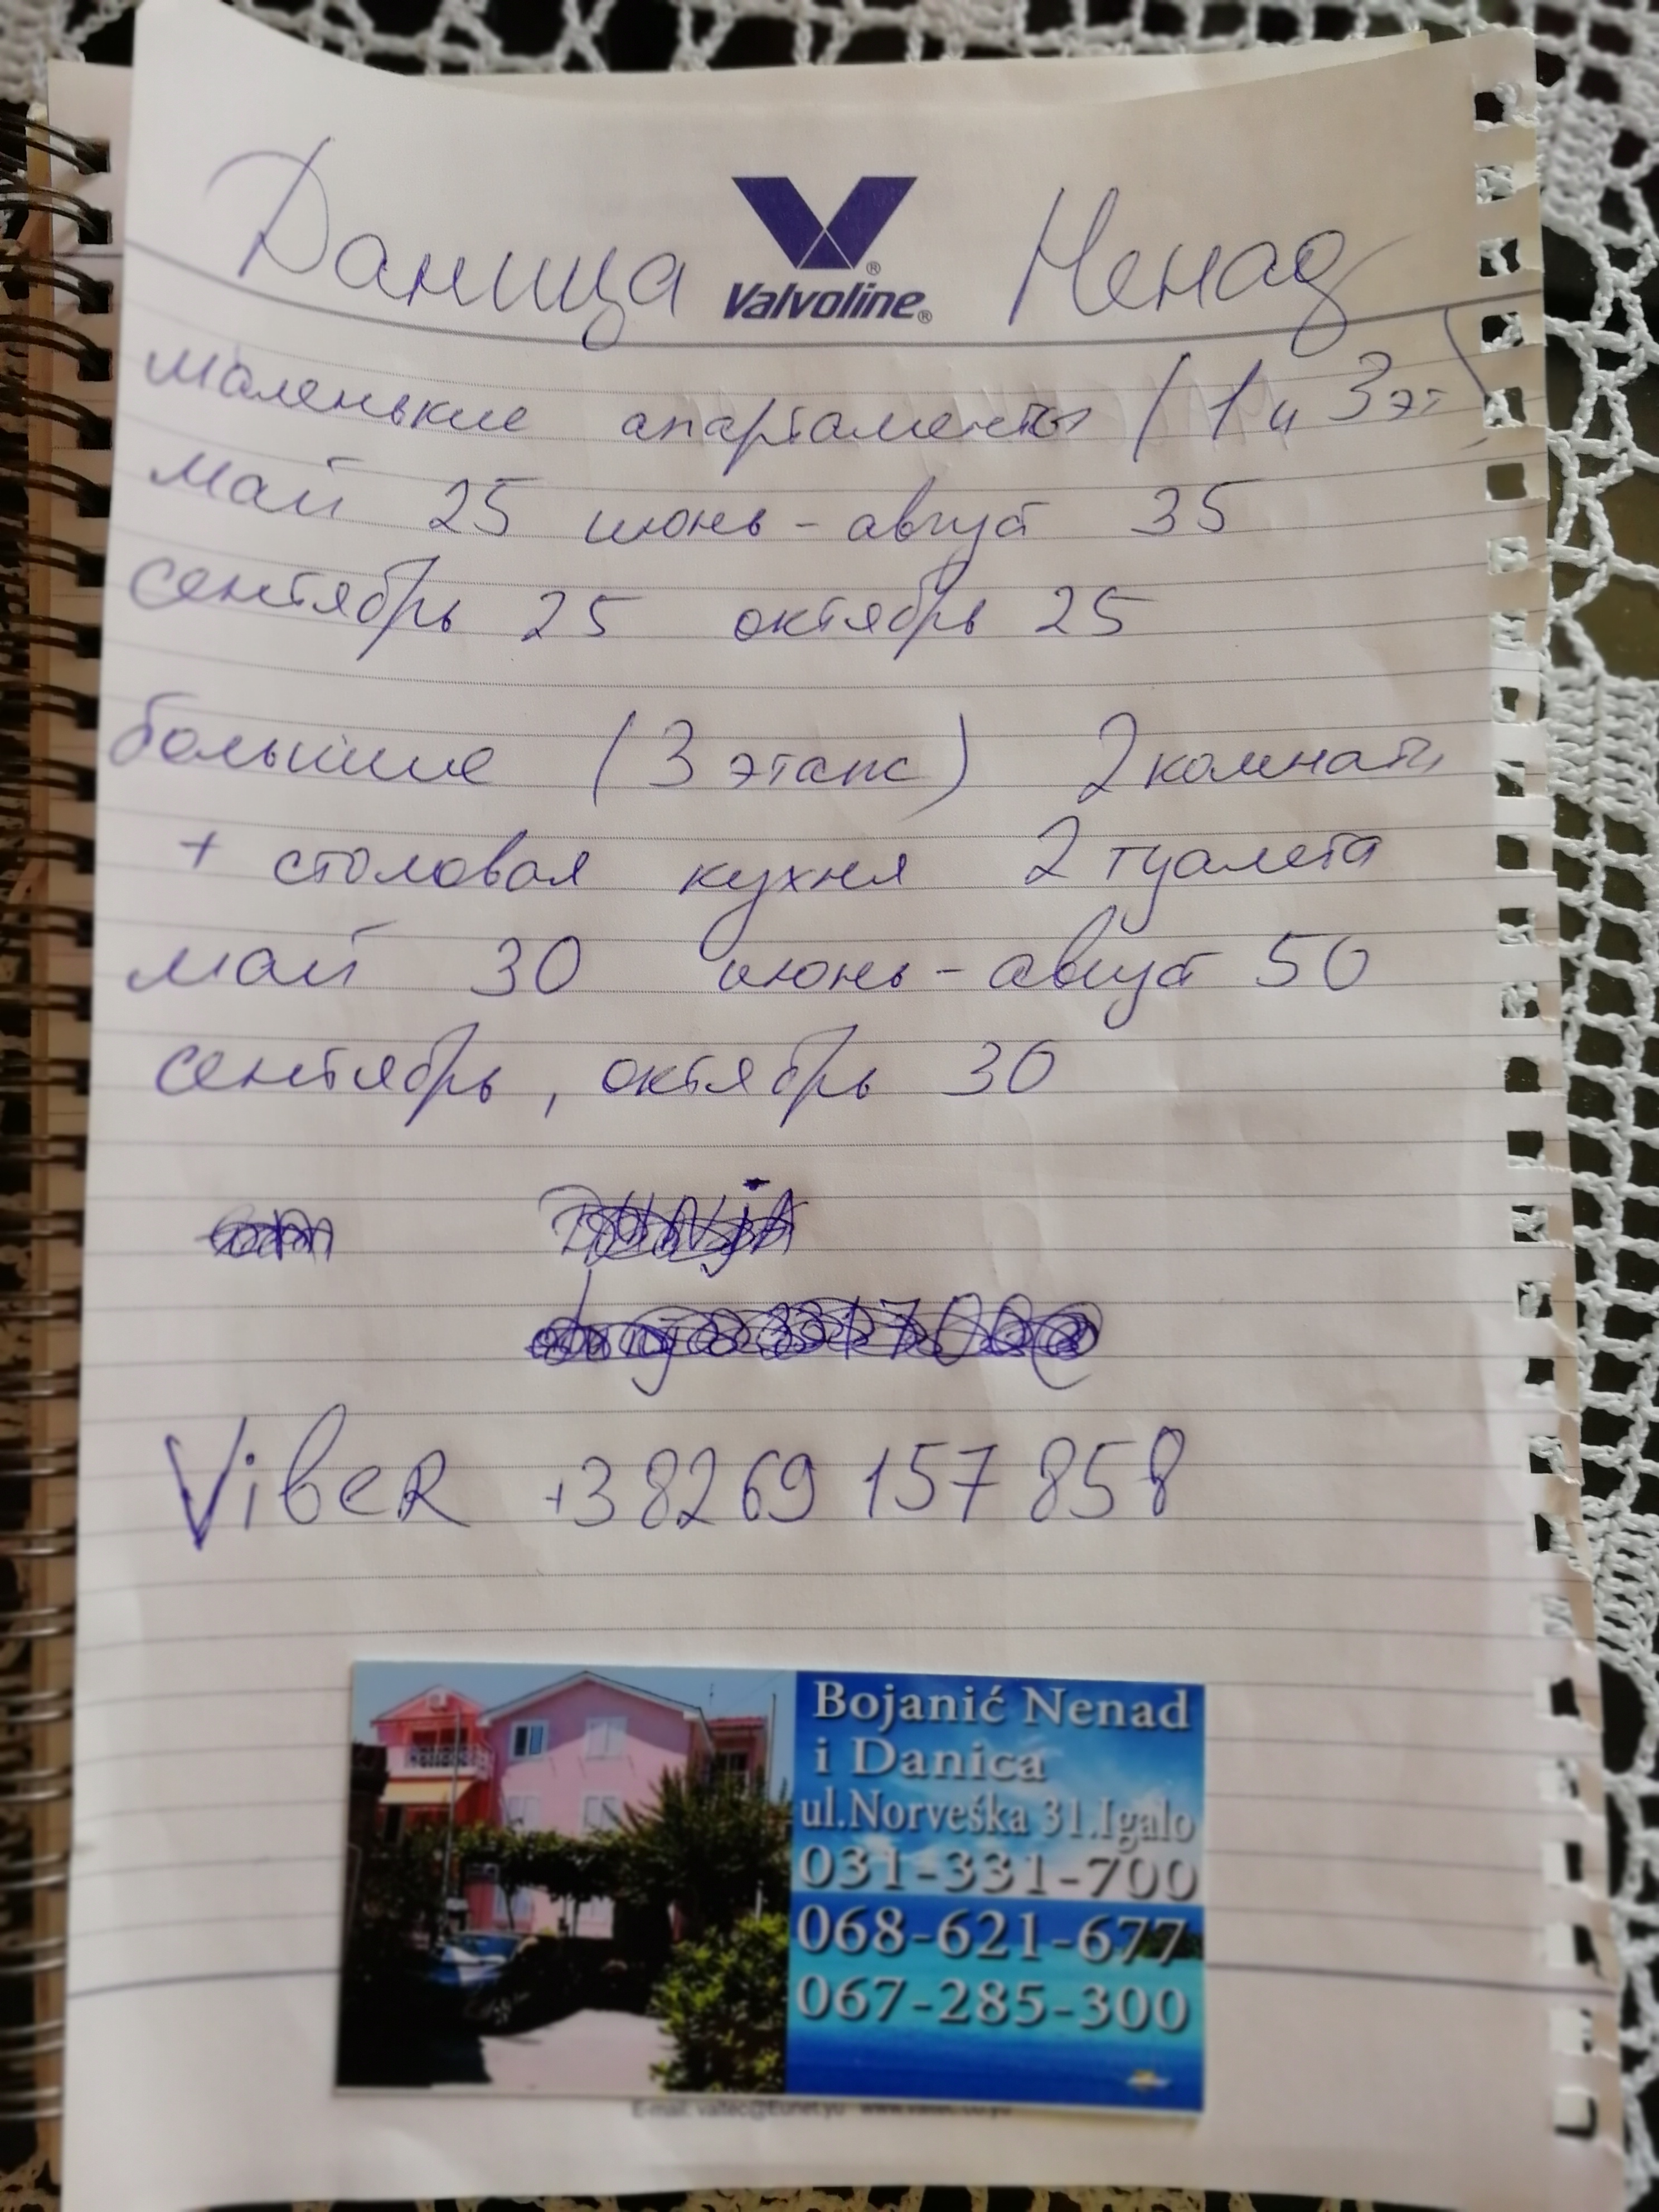 Даница Ненад
Valvoline
маленькие апартаменты (1 и 3 эт)
май 25 июнь - август 35
сентябрь 25 октябрь 25
большие (3 этапс) 2 комнаты
+ столовая кухня 2 туалета
май 30 июнь - август 50
сентябрь, октябрь 30
ViBeR +382 69 157 858
Bojanić Nenad
i Danica
ul.Norveśka 31.Igalo
031-331-700
068-621-677
067-285-300